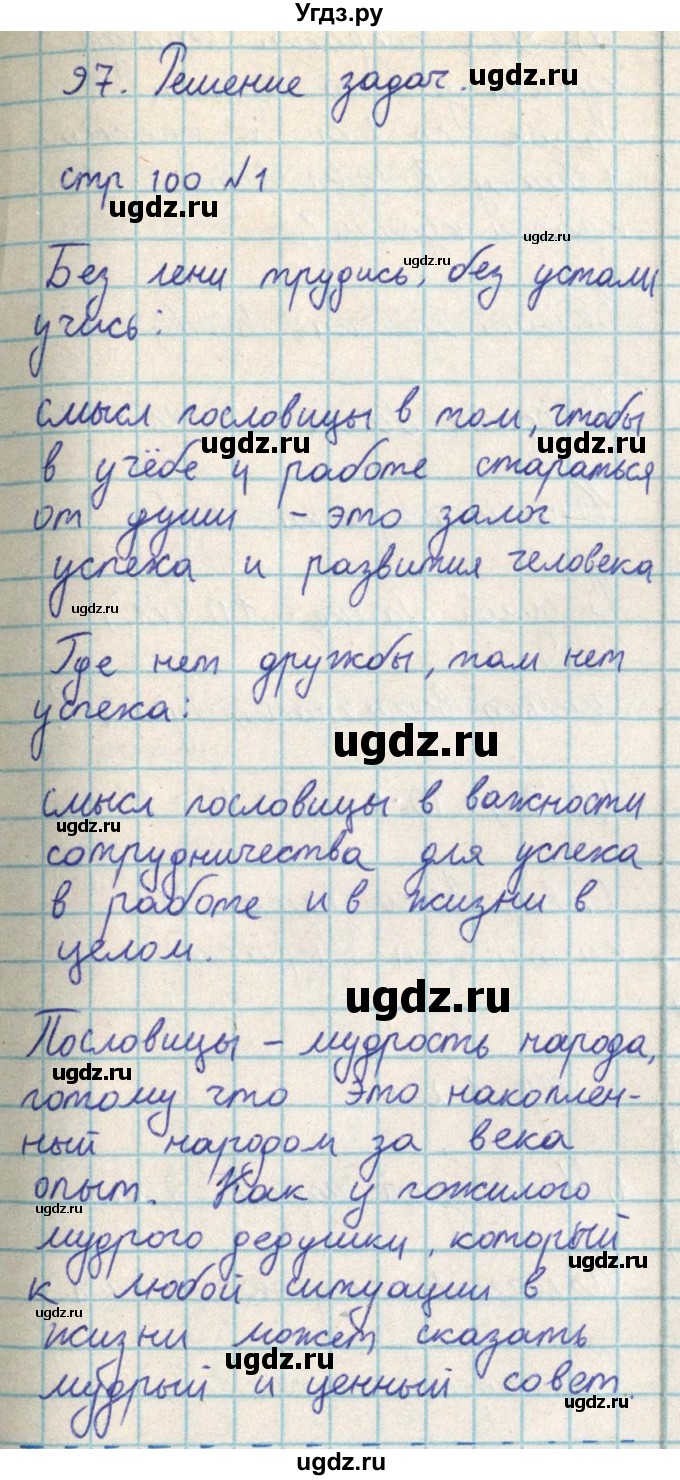 Угдз.ру
97. Решение задач. ugdz.ru
стр 100 №1
ugdz.ru
ugdz.ru
ugdz.ru
Без лени трудись, без устали
учись:
смысл пословицы в том, чтобы
ugdz.ru ugdz.ru
в учёбе и работе стараться
от души – это залог
успеха и развития человека
ugdz.ru
Где нет дружбы, там нет
успеха:
ugdz.ru
смысл пословицы в важности
ugdz.ru
сотрудничества для успеха
в работе и в жизни в
целом.
ugdz.ru
Пословицы – мудрость народа,
ugdz.ru
потому что это накоплен-
ный народом за века
опыт. Как у пожилого
ugdz.ru
мудрого дедушки, который
ugdz.ru
к любой ситуации в
ugdz.ru
жизни может сказать
ugdz.ru
мудрый и ценный совет.
ugdz.ru
ugdz.ru